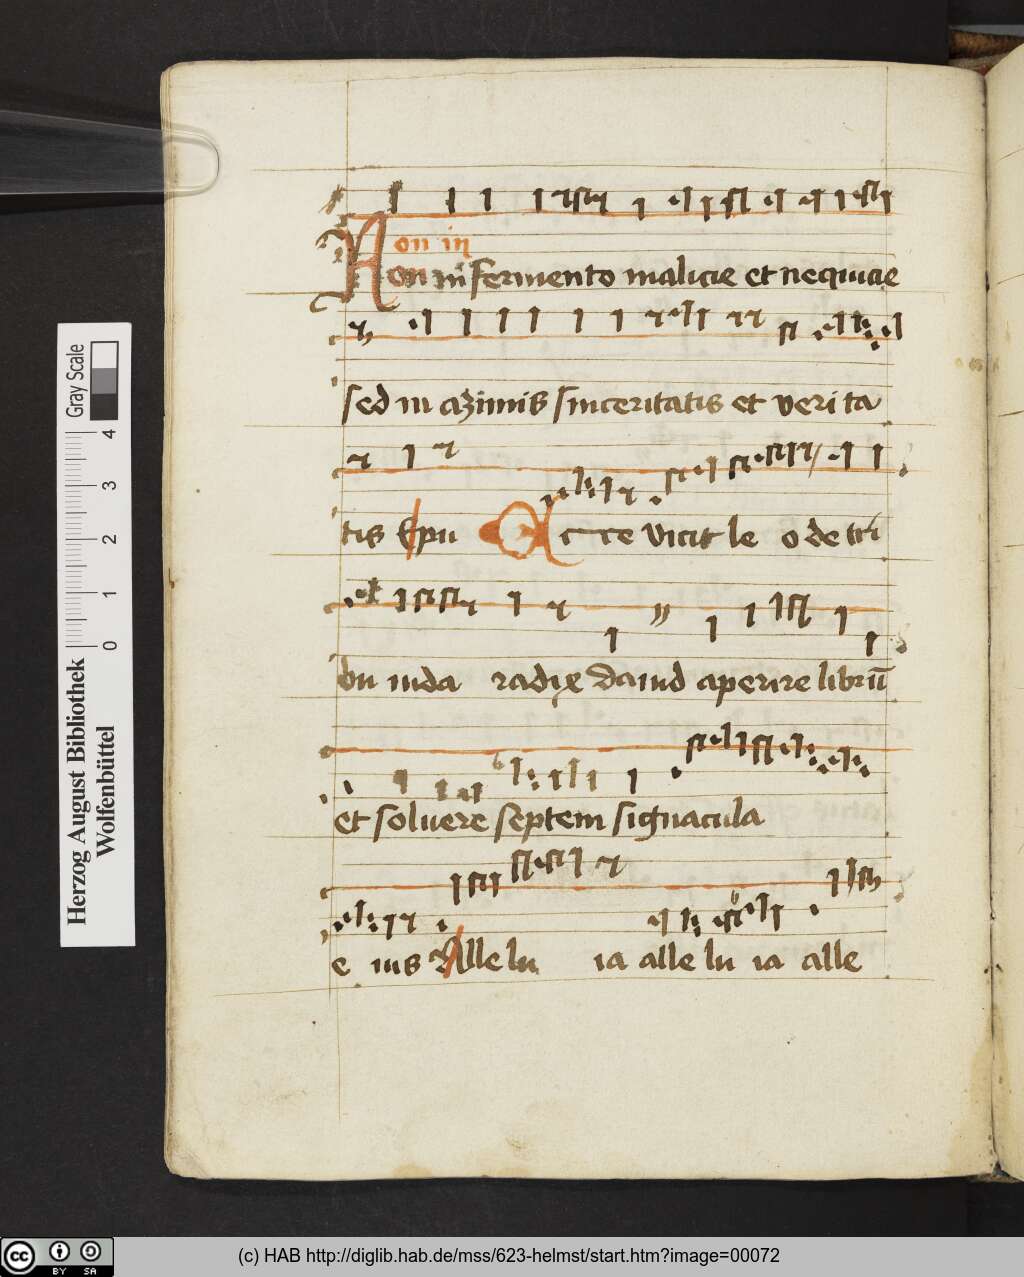 on in
Non in fermento malicie et nequicie
sed in azimis sinceritatis et verita
tis Epu Ecce vicit le o de tri
bu iuda radix dauid aperire librū
et soluere septem signacula
e ius Alle lu ia alle lu ia alle
Gray Scale
4
3
2
1
0
Herzog August Bibliothek
Wolfenbüttel
cc BY SA
(c) HAB http://diglib.hab.de/mss/623-helmst/start.htm?image=00072